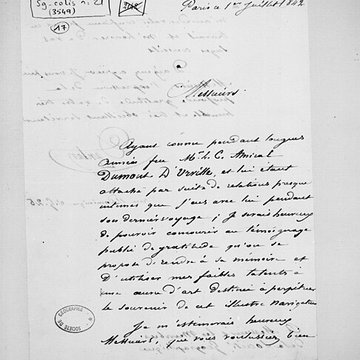 Sg. colis n. 21
(3549)
17
Paris le 1er Juillet 1842
Messieurs
Ayant connu pendant longues
années feu Mr. le C. Amiral
Dumont D'Urville, et lui étant
attaché par suite de relations presque
intimes que j'eus avec lui pendant
son dernier voyage; Je serais heureux
de pouvoir concourir au témoignage
public de gratitude qu'on se
propose de rendre à sa mémoire et
d'utiliser mes faibles talents à
une œuvre d'art destinée à perpétuer
le souvenir de cet illustre navigateur
Je m'estimerais heureux
Messieurs, que vous voulussiez bien
SOCIÉTÉ DE GÉOGRAPHIE